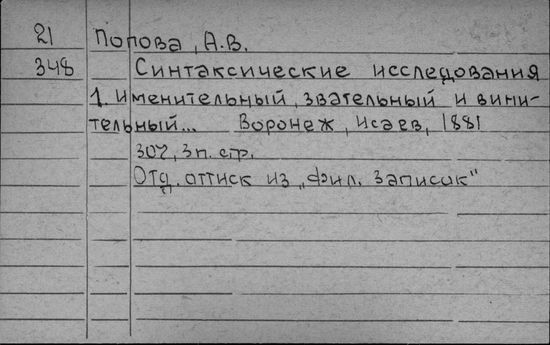 21 Попова, А.В.
348 Синтаксические исследования
1. Именительный, звательный и вини-
тельный... Воронеж, Исаев, 1881
307, 3 п. стр.
Отд. оттиск из „Фил. записок"